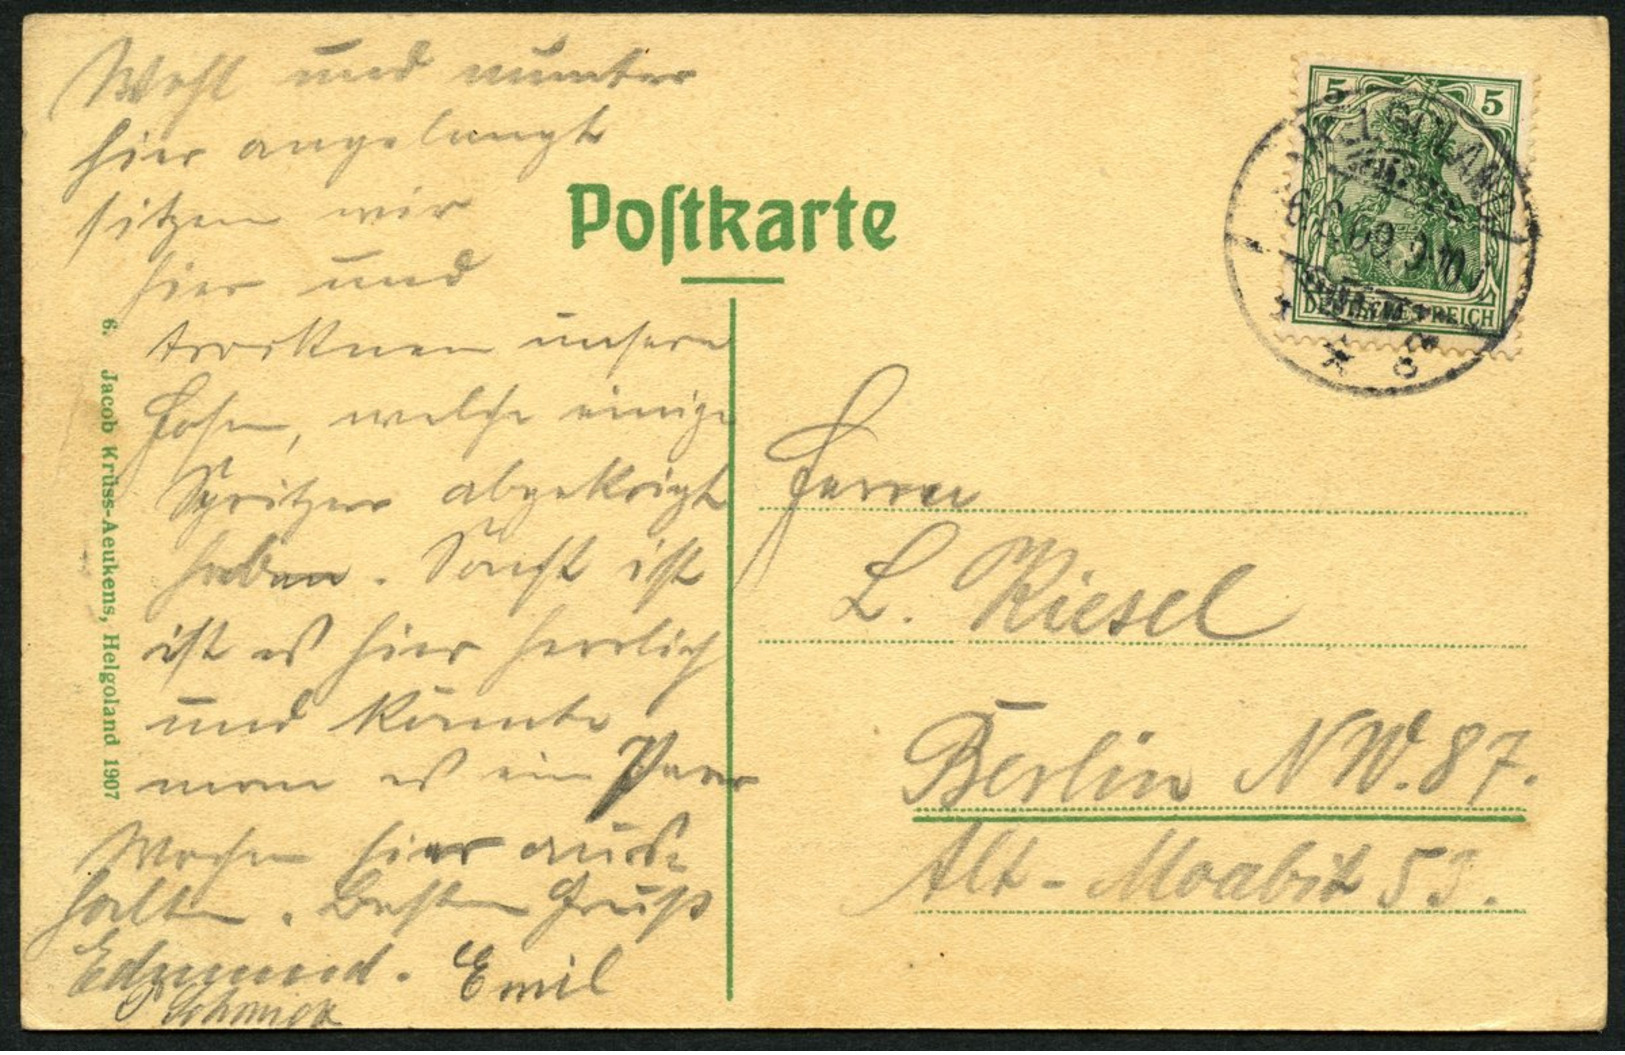 Wohl und munter
hier angelangt
sitzen wir
hier und
trocknen unsere
Hosen, welche einige
Spritzer abgekriegt
haben. Sonst ist
ist es hier herrlich
und könnte
man es ein Paar
Wochen hier aus-
halten. Besten Gruß
Edmund. Emil
Postkarte
6. Jacob Krüss-Aeukens, Helgoland 1907
5 5
HELGOLAND
6.6.09. 9-10
DEUTSCHES REICH
Herrn
L. Riesel
Berlin NW. 87.
Alt-Moabit 53.